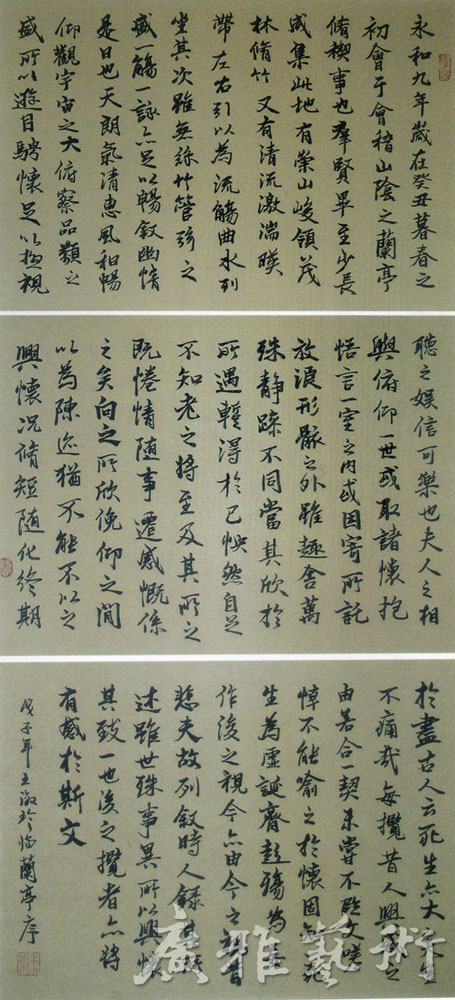 永和九年歲在癸丑暮春之
初會于會稽山陰之蘭亭
脩稧事也羣賢畢至少長
咸集此地有崇山峻領茂
林脩竹又有清流激湍暎
帶左右引以為流觴曲水列
坐其次雖無絲竹管弦之
盛一觴一詠亦足以暢敘幽情
是日也天朗氣清惠風和暢
仰觀宇宙之大俯察品類之
盛所以遊目騁懷足以極視
聽之娛信可樂也夫人之相
與俯仰一世或取諸懷抱
悟言一室之內或因寄所託
放浪形骸之外雖趣舍萬
殊靜躁不同當其欣於
所遇暫得於己怏然自足
不知老之將至及其所之
既惓情隨事遷感慨係
之矣向之所欣俛仰之間
以為陳迹猶不能不以之
興懷況脩短隨化終期
於盡古人云死生亦大
不痛哉每攬昔人興感之
由若合一契未嘗不臨文嗟
悼不能喻之於懷固知死
生為虛誕齊彭殤為妄
作後之視今亦由今之視昔
悲夫故列敘時人錄其所
述雖世殊事異所以興懷
其致一也後之攬者亦將
有感於斯文
戊子年王淑玲臨蘭亭序
廣雅藝術